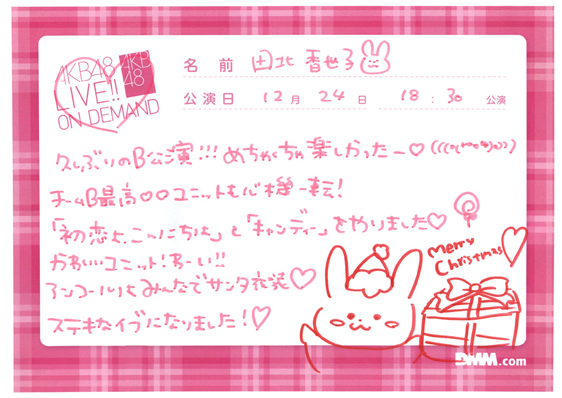 AKB48 LIVE!! ON DEMAND
AKB48
名前 田北香世子
公演日 12月24日 18:30公演
久しぶりのB公演!!! めちゃくちゃ楽しかったー♡
チームB最高♡♡ユニットも心機一転!
「初恋よ、こんにちは」と「キャンディー」をやりました♡
かわいいユニット!わーい!!
アンコールはみんなでサンタ衣装♡
ステキなイブになりました!♡
Merry Christmas♡
DMM.com